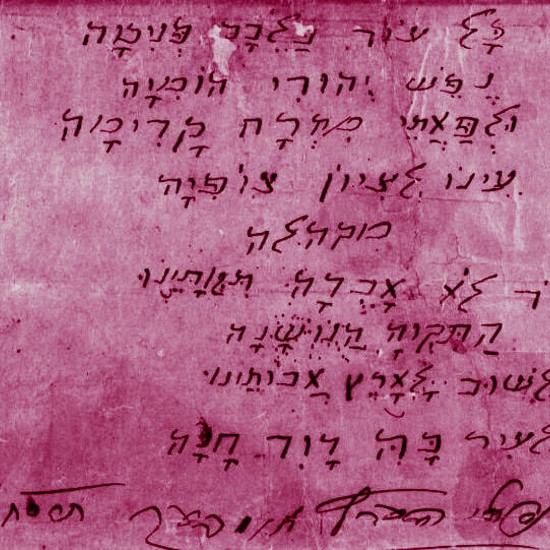 כָּל עוֹד בַּלֵּבָב פְּנִימָה
נֶפֶשׁ יְהוּדִי הוֹמִיָּה
וּלְפַאֲתֵי מִזְרָח קָדִימָה
עֵינוֹ לְצִיּוֹן צוֹפִיָּה
מקהלה
לֹא אָבְדָה תִּקְוָתֵינוּ
הַתִּקְוָה הַנּוֹשָׁנָה
לָשׁוּב לְאֶרֶץ אֲבוֹתֵינוּ
לְעִיר בָּהּ דָּוִד חָנָה